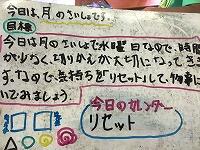 今日は、月のさいしょです。
日本語
今日は月のさいしょで水曜日なので、時間
が少なく、切りかえが大切になってき
ます。なので、気持ちを「リセット」して、物事に
いてみましょう。
今日のカレンダー
リセット